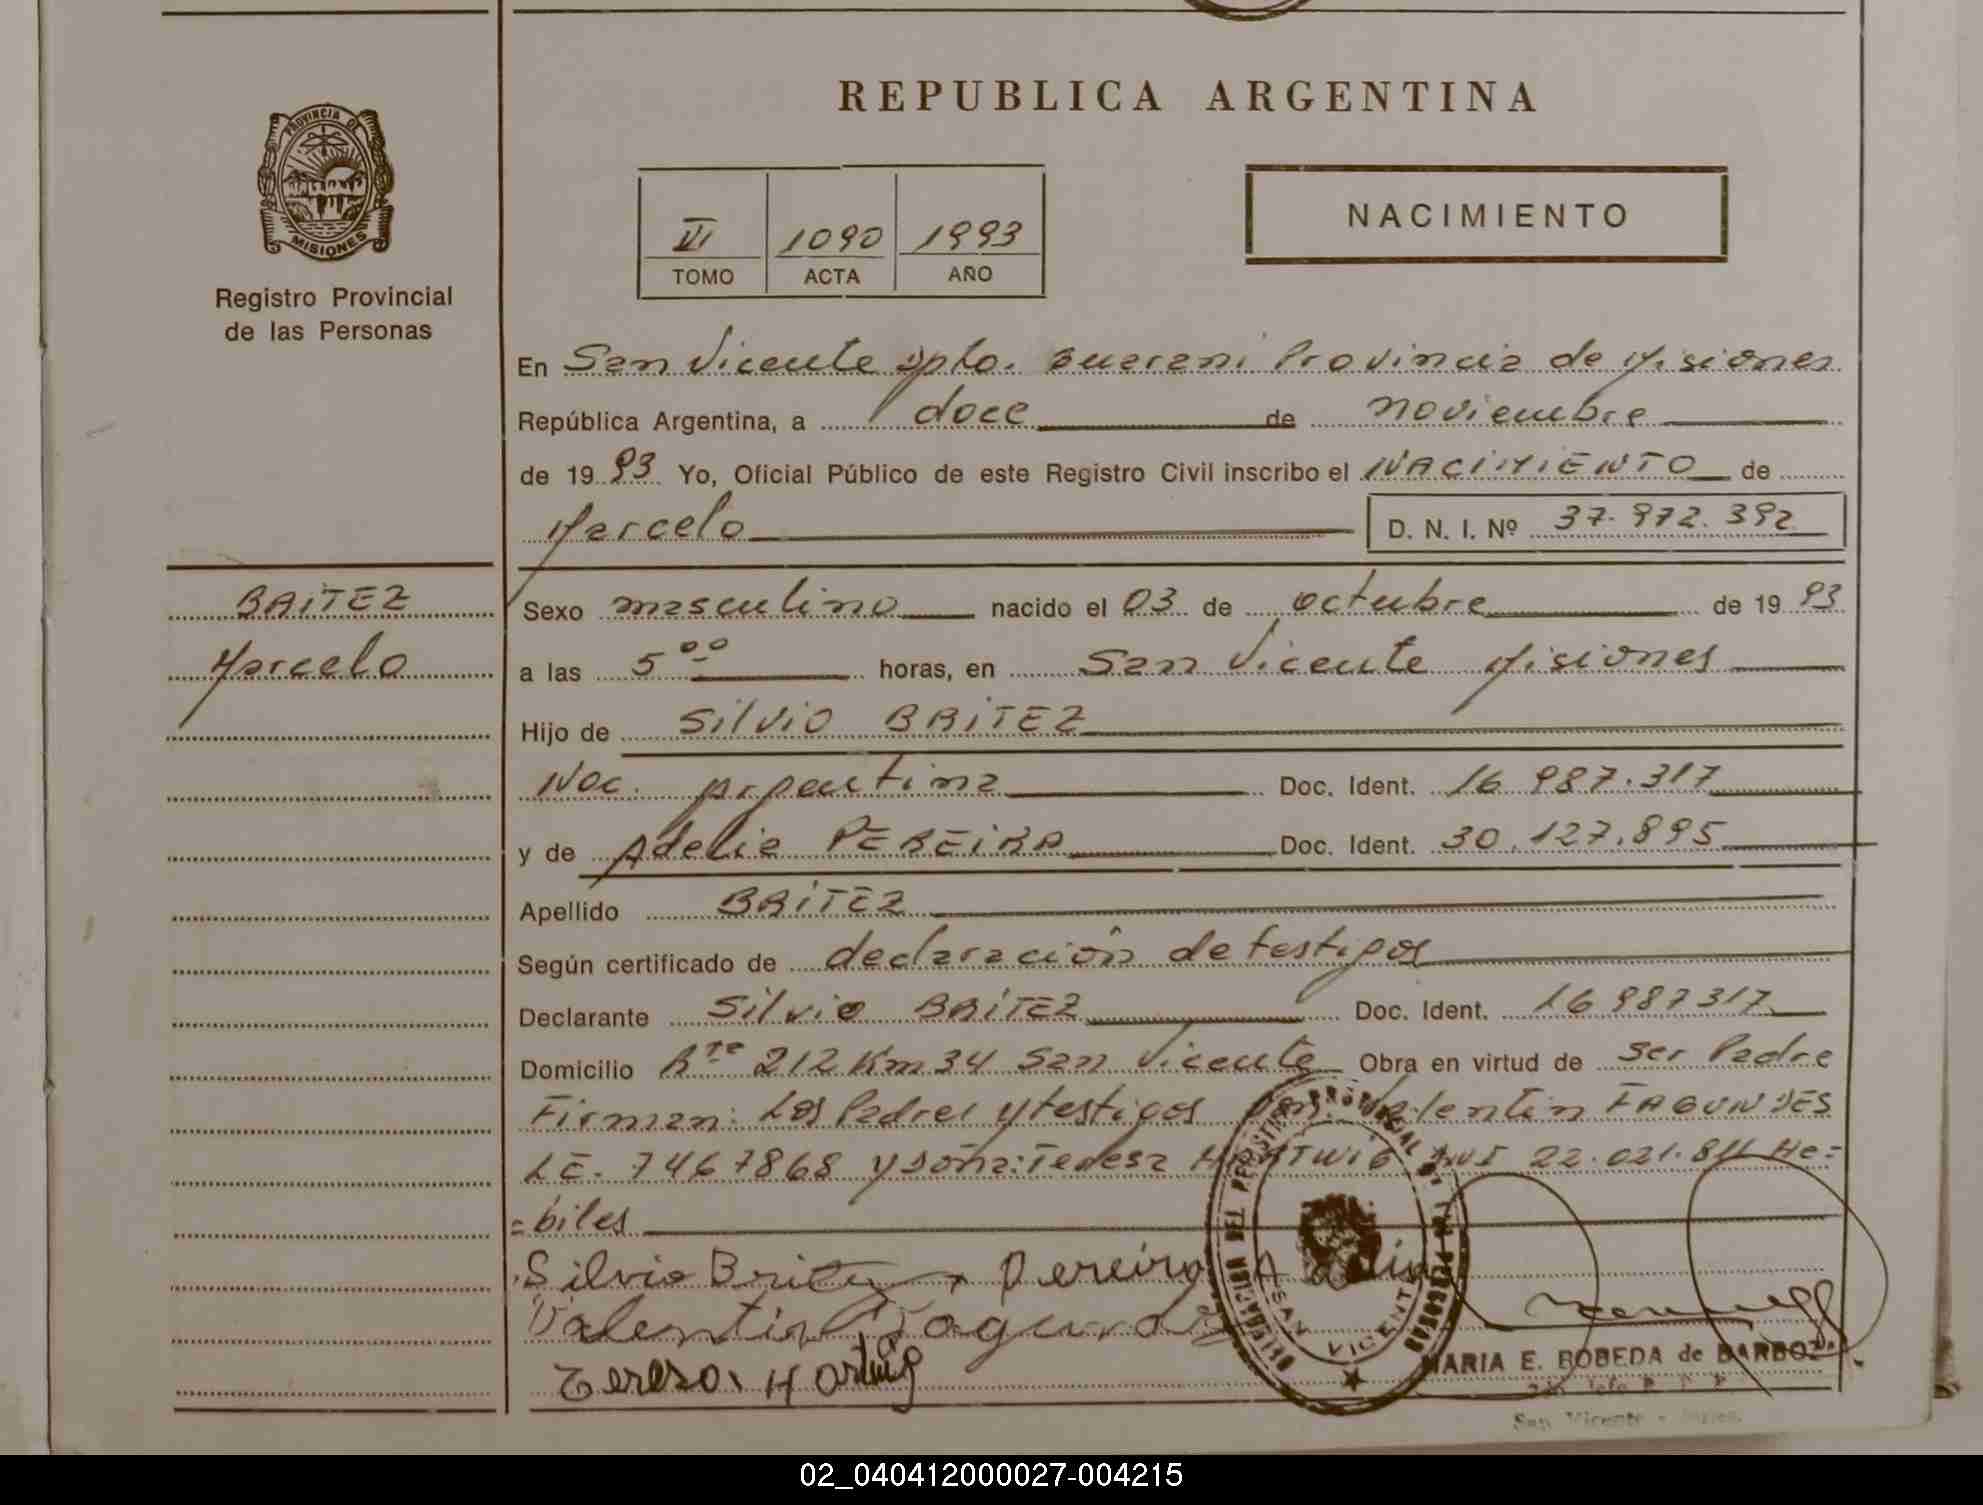 REPUBLICA ARGENTINA
PROVINCIA DE
MISIONES
Registro Provincial
de las Personas
VI 1090 1993
TOMO ACTA AÑO
NACIMIENTO
En San Vicente Dpto. Guarani Provincia de Misiones
República Argentina, a doce de noviembre
de 1993 Yo, Oficial Público de este Registro Civil inscribo el NACIMIENTO de
Marcelo D. N. I. Nº 37.972.392
BRITEZ
Marcelo
Sexo masculino nacido el 03 de octubre de 1993
a las 5 00 horas, en San Vicente Misiones
Hijo de Silvio BRITEZ
Nac. Argentina Doc. Ident. 16 987.317
y de Adelia PEREIRA Doc. Ident. 30.127.895
Apellido BRITEZ
Según certificado de declaración de testigos
Declarante Silvio BRITEZ Doc. Ident. 16987317
Domicilio Rta 212 Km 34 San Vicente Obra en virtud de ser Padre
Firman: Los Padres y testigos Valentin FAGUNDES
LE. 7467868 y Doña: Teresa HARTWIG DNI 22.021.811 Há=
=biles
Silvio Britez Pereira Adelia
Valentin Fagundes
Teresa Hartwig
DELEGACION DEL REGISTRO PROVINCIAL DE LAS PERSONAS
SAN VICENTE
MARIA E. BOBEDA de BARBOZA
San Vicente - Mnes.
02_040412000027-004215